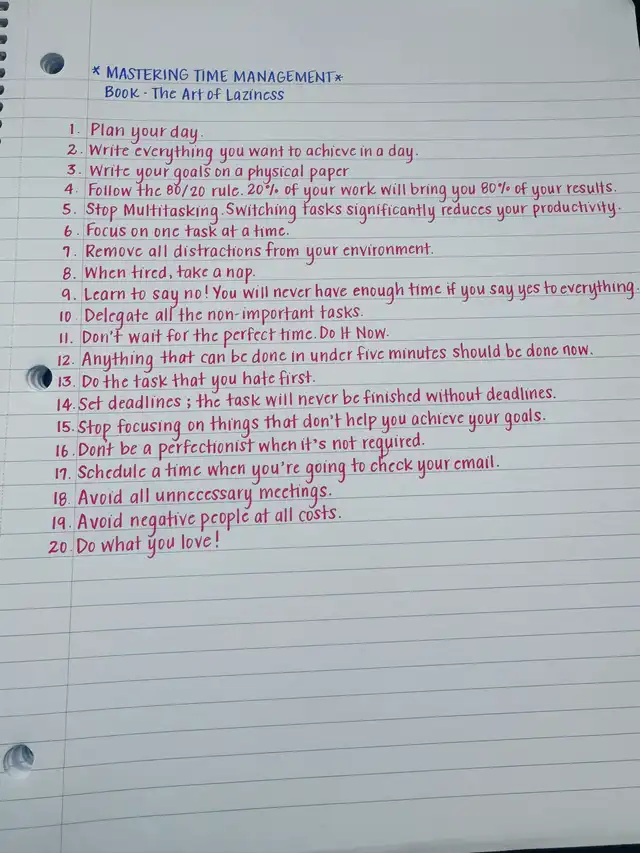 * MASTERING TIME MANAGEMENT*
Book - The Art of Laziness
1. Plan your day.
2. Write everything you want to achieve in a day.
3. Write your goals on a physical paper
4. Follow the 80/20 rule. 20% of your work will bring you 80% of your results.
5. Stop Multitasking. Switching tasks significantly reduces your productivity.
6. Focus on one task at a time.
7. Remove all distractions from your environment.
8. When tired, take a nap.
9. Learn to say no! You will never have enough time if you say yes to everything.
10. Delegate all the non-important tasks.
11. Don't wait for the perfect time. Do It Now.
12. Anything that can be done in under five minutes should be done now.
13. Do the task that you hate first.
14. Set deadlines ; the task will never be finished without deadlines.
15. Stop focusing on things that don't help you achieve your goals.
16. Dont be a perfectionist when it's not required.
17. Schedule a time when you're going to check your email.
18. Avoid all unnecessary meetings.
19. Avoid negative people at all costs.
20. Do what you love!